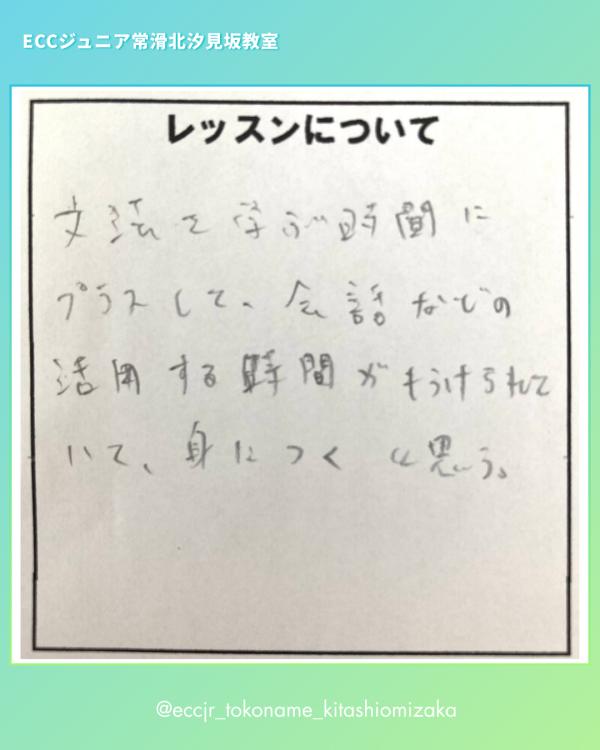 ECCジュニア常滑北汐見坂教室
レッスンについて
文法を学ぶ時間に
プラスして、会話などの
活用する時間がもうけられて
いて、身につくと思う。
@eccjr_tokoname_kitashiomizaka